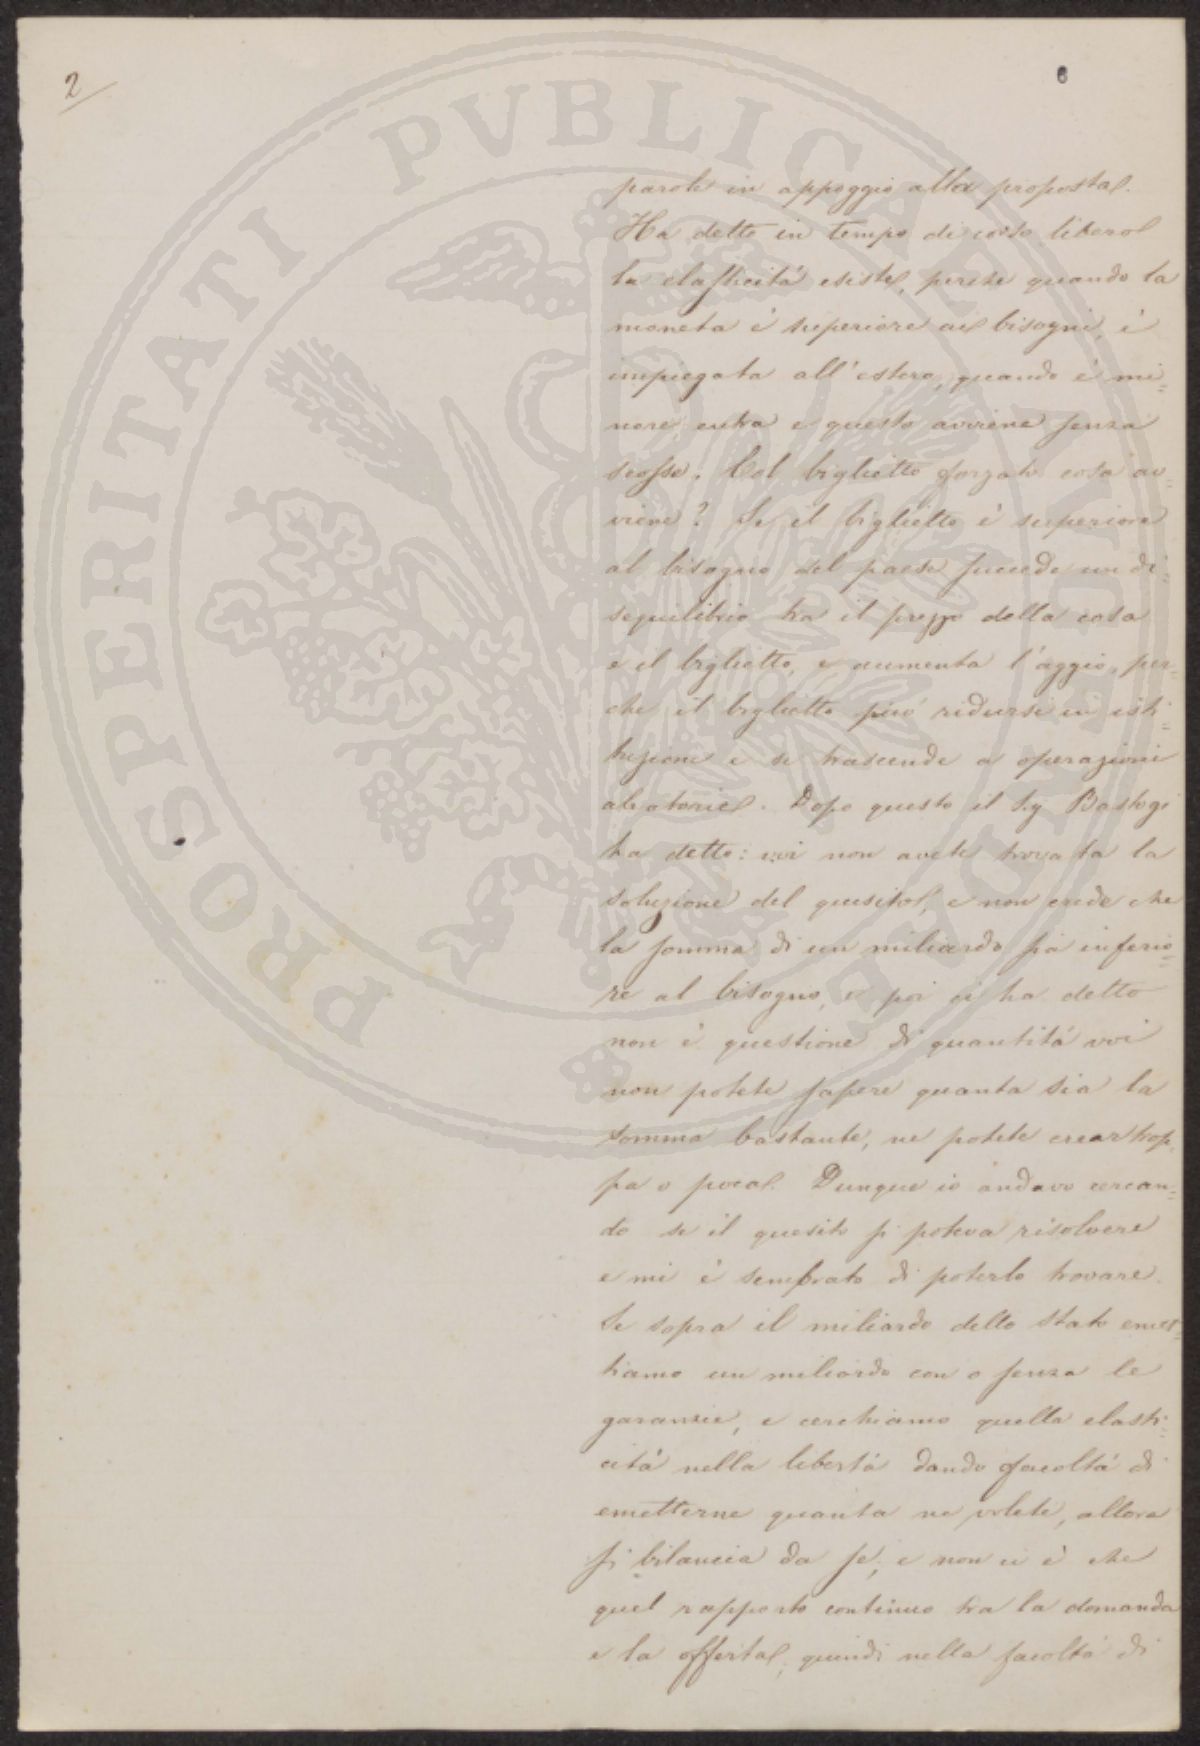 2
parole in appoggio alla proposta.
Ha detto in tempo di corso libero
la elasticità esiste, perchè quando la
moneta è superiore ai bisogni, è
impiegata all'estero, quando è mi=
nore, entra e questo avviene senza
scosse. Col biglietto forzato cosa av=
viene? Se il biglietto è superiore
al bisogno del paese succede un di=
sequilibrio tra il prezzo della cosa
e il biglietto, e aumenta l'aggio, per=
che il biglietto può ridursi in isti=
tuzione e si trascende a operazioni
aleatorie. Dopo questo il Sig Bastogi
ha detto: voi non avete trovata la
soluzione del quesito, e non crede che
la somma di un miliardo sia inferio=
re al bisogno, e poi ci ha detto
non è questione di quantità voi
non potete sapere quanta sia la
somma bastante, ne potete crear trop=
pa o poca. Dunque io andavo cercan=
do se il quesito si poteva risolvere
e mi è sembrato di poterlo trovare.
Se sopra il miliardo dello Stato emet=
tiamo un miliardo con o senza le
garanzie, e cerchiamo quella elasti=
cità nella libertà dando facoltà di
emetterne quanta ne volete, allora
si bilancia da se, e non ci è che
quel rapporto continuo tra la domanda
e la offerta, quindi nella facoltà di
PROSPERITATI PVBLICAE